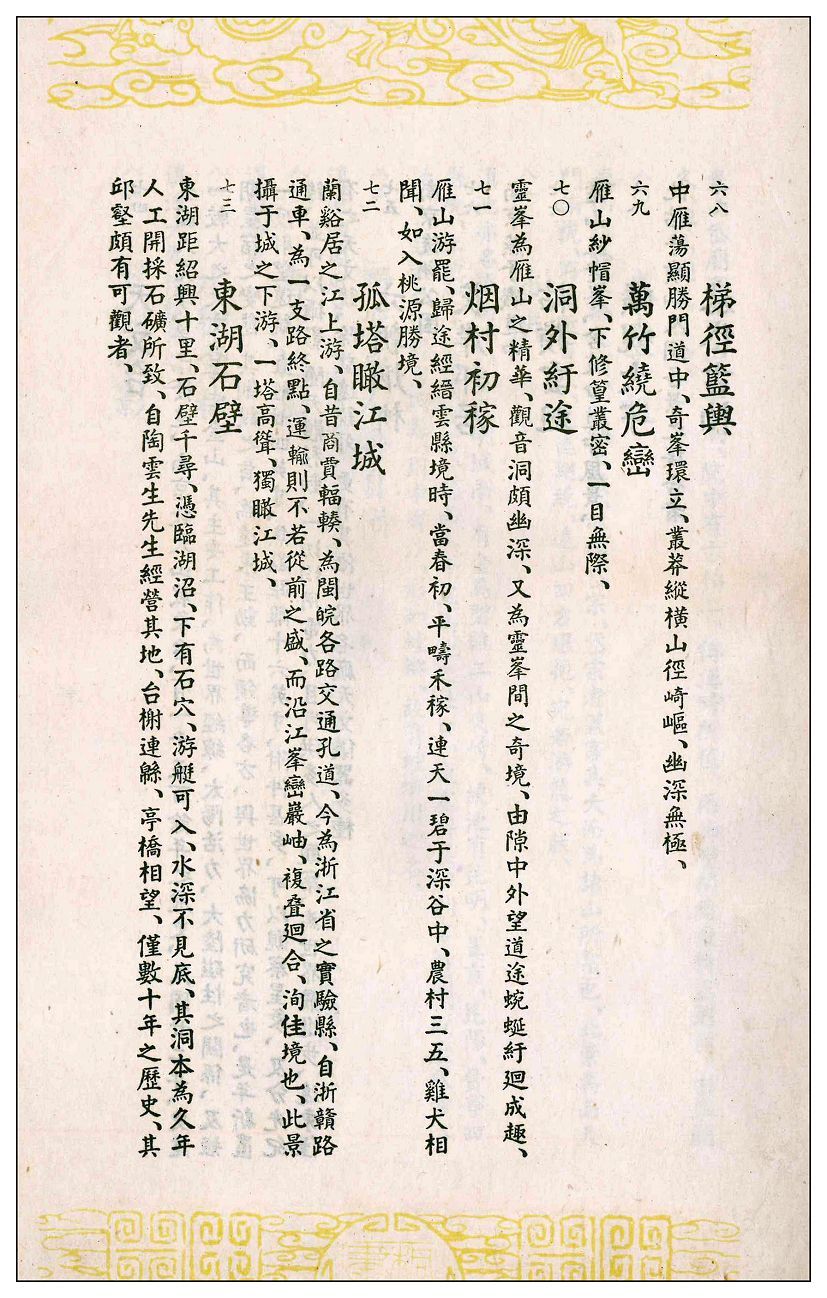 六八 梯徑籃輿
中雁蕩顯勝門道中、奇峯環立、叢莽縱橫山徑崎嶇、幽深無極、
六九 萬竹繞危巒
雁山紗帽峯、下修篁叢密、一目無際、
七〇 洞外紆途
靈峯為雁山之精華、觀音洞頗幽深、又為靈峯間之奇境、由隙中外望道途蜿蜒紆廻成趣、
七一 烟村初稼
雁山游罷、歸途經縉雲縣境時、當春初、平疇禾稼、連天一碧于深谷中、農村三五、雞犬相
聞、如入桃源勝境、
七二 孤塔瞰江城
蘭谿居之江上游、自昔商賈輻輳、為閩皖各路交通孔道、今為浙江省之實驗縣、自浙贛路
通車、為一支路終點、運輸則不若從前之盛、而沿江峯巒巖岫、複叠廻合、洵佳境也、此景
攝于城之下游、一塔高聳、獨瞰江城、
七三 東湖石壁
東湖距紹興十里、石壁千尋、憑臨湖沼、下有石穴、游艇可入、水深不見底、其洞本為久年
人工開採石礦所致、自陶雲生先生經營其地、台榭連緜、亭橋相望、僅數十年之歷史、其
邱壑頗有可觀者、